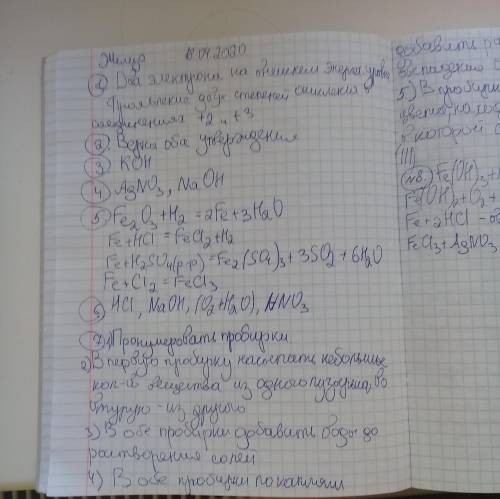 18.04.2020
1) Два электрона на внешнем энерг. уровне
двух степеней окисления в
соединениях +2 и +3
2. Верны оба утверждения
3. KOH
4) AgNO3, NaOH
5) Fe2O3 + H2 = 2Fe + 3H2O
Fe + HCl = FeCl2 + H2
Fe + H2SO4(р-р) = Fe2(SO4)3 + 3SO2 + 6H2O
Fe + Cl2 = FeCl3
6) HCl, NaOH, (O2 + H2O), HNO3
7) 1) Пронумеровать пробирки
2) В первую пробирку насыпать небольшие
кол-в вещества из одного пузырька, во
вторую - из другого
3) В обе пробирки добавить воды до
растворения солей
4) В обе пробирки по каплям
добавить ра
5) В пробирк
в которой
№8. Fe(OH)3 +
Fe(OH)2 + O2 +
Fe + 2HCl -
FeCl3 + AgNO3